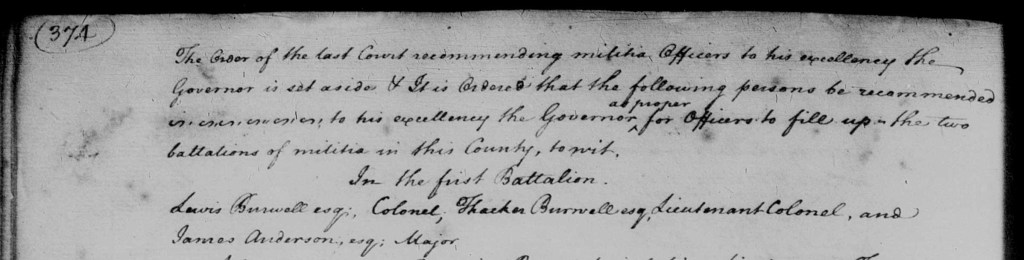 (374)
The Order of the last Court recommending militia Officers to his excellency the
Governor is set aside & It is Ordered that the following persons be recommended
to his excellency the Governor ^as proper for Officers to fill up the two
battalions of militia in this County, to wit.
In the first Battalion.
Lewis Burwell esq; Colonel, Thacker Burwell esq, Lieutenant Colonel, and
James Anderson, esq; Major